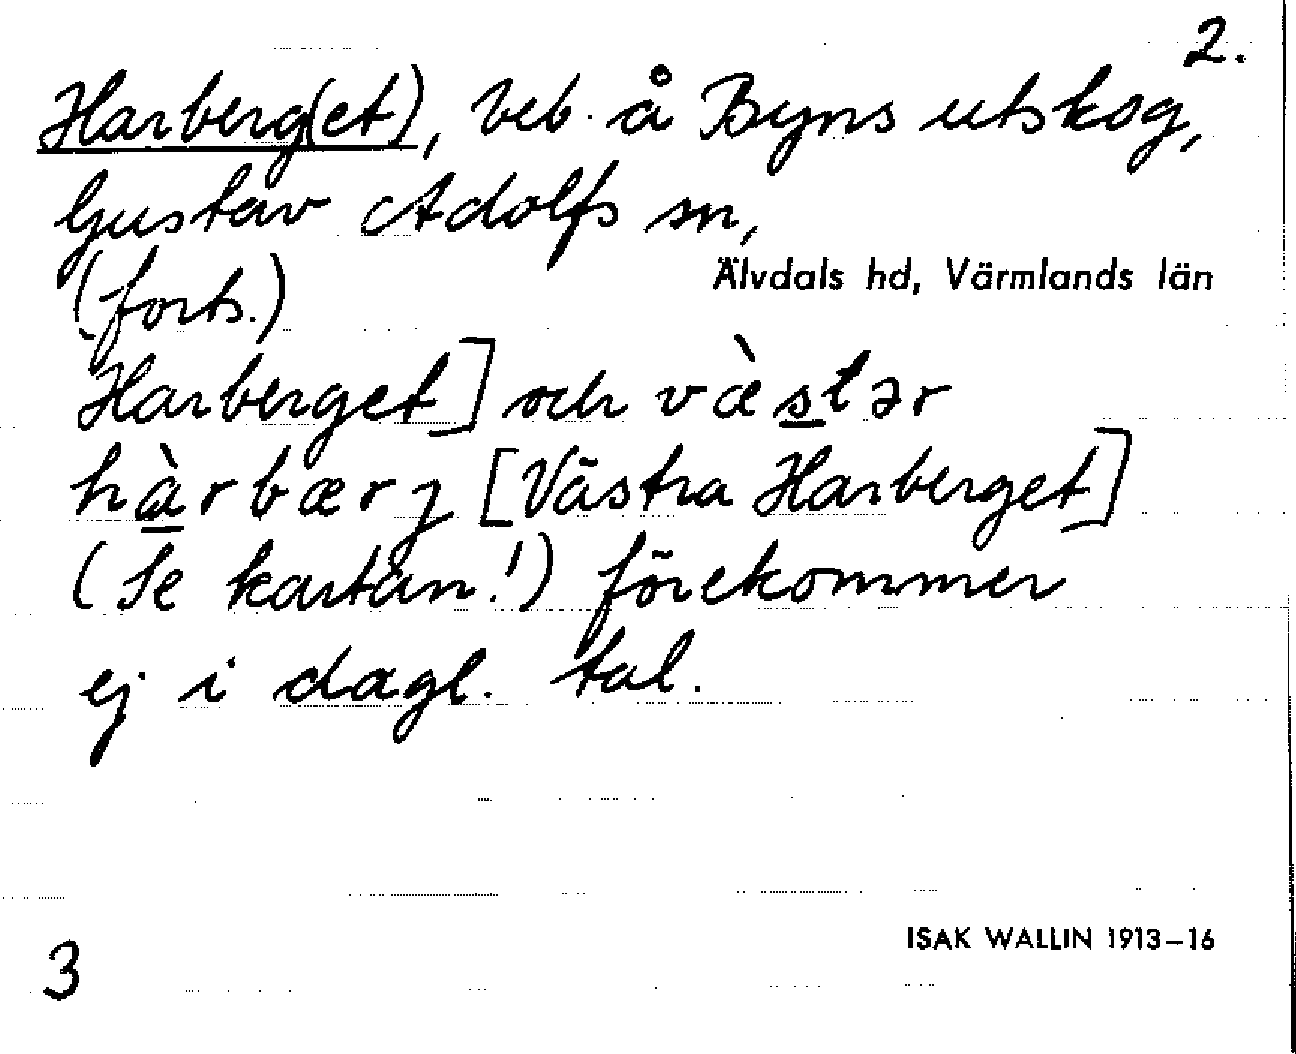 2.
Harberg(et), beb. å Byns utskog,
Gustav Adolfs sn,
Älvdals hd, Värmlands län
(forts.)
Harberget] och væ̀stər
hàrbærj [Västra Harberget]
(Se kartan!) förekommer
ej i dagl. tal.
ISAK WALLIN 1913–16
3